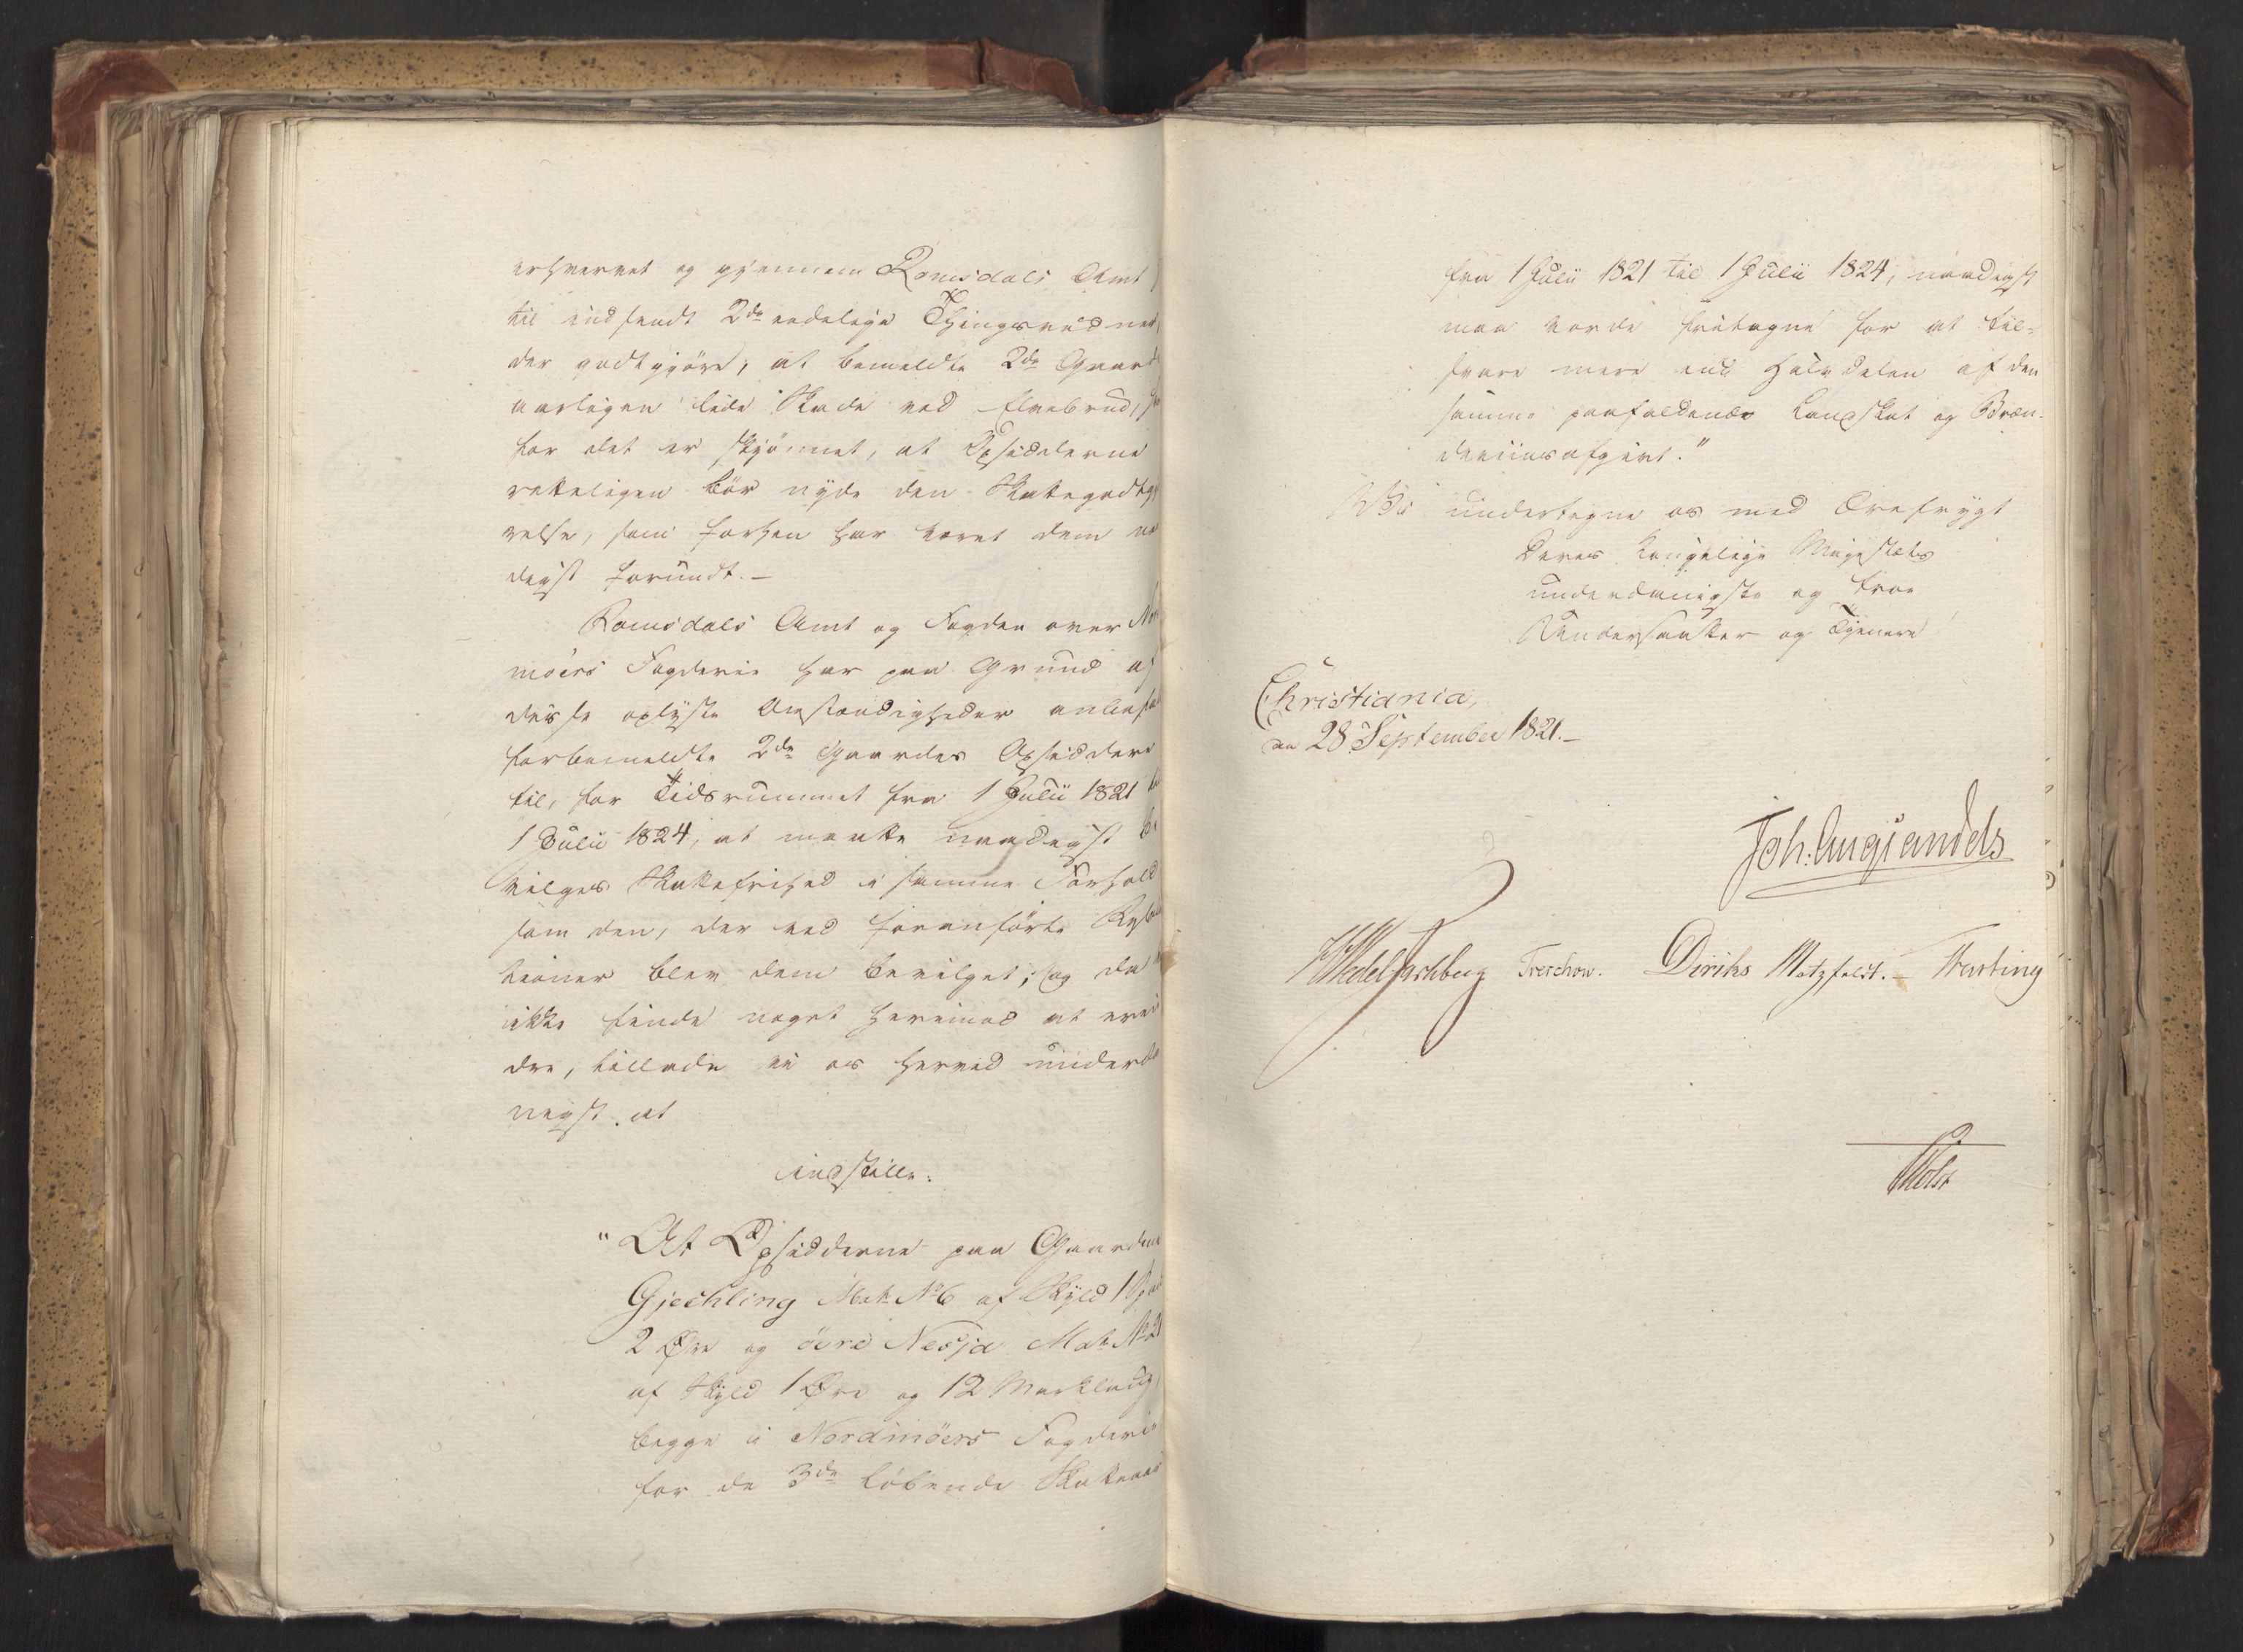 erhvervet og gjennem Romsdals Amt
til indsendt 2de eedelige Thingsvidner,
der godtgjöre, at bemeldte 2de Gaarde
aarligen lide Skade ved Elvebrud,
for det er skjönnet, at Opsidderne
retteligen bör nyde den Skattegodtgj
relse, som forhen har været dem naa
digst forundt. —
Romsdals Amt og Fogden over Nord
möers Fogderie har paa Grund af
disse oplyste Omstændigheder anbefa
forbemeldte 2de Gaardes Opsiddere
til, for Tidsrummet fra 1 Julii 1821 til
1 Julii 1824, at maatte naadigst be
vilges Skattefrihed i samme Forhold
som den, der ved foranförte Resolu
tioner blev dem bevilget; og da vi
ikke finde noget herimod at erin
dre, tillade vi os herved underda
nigst at
indstille:
"At Opsidderne paa Gaardene
Gjechling Mat. No 6 af Skyld 1 Spand
2 Öre og övre Nesja Mat. No 21
af Skyld 1 Öre og 12 Marklaug,
begge i Nordmöers Fogderie
for de 3de löbende Skatteaar
fra 1 Julii 1821 til 1 Julii 1824, naadigst
maa vorde fritagne for at til=
svare mere end Halvdelen af den
samme paafaldende Landskat og Bræn=
deviinsafgivt."
Vi undertegne os med Ærefrygt
Deres Kongelige Majestæts
underdanigste og troe
Undersaatter og Tjenere
Christiania,
den 28 September 1821. —
Joh: Aug: Sandels
HWedel Jarlsberg Treschow. Diriks Motzfeldt. Fasting
Holst